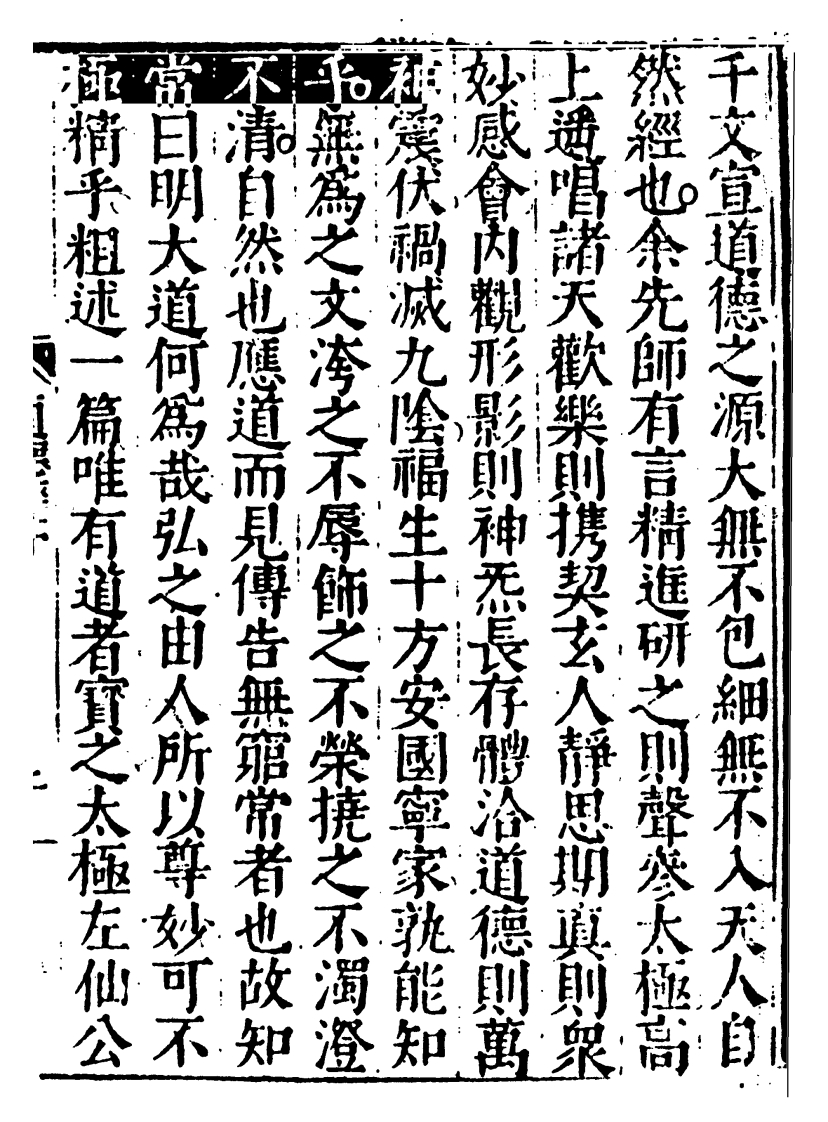 千文宣道德之源大無不包細無不入天人自
然經也余先師有言精進研之則聲參太極高
上遥唱諸天歡樂則携契玄人靜思期真則衆
妙感會内觀形影則神炁長存體洽道德則萬
神震伏禍滅九陰福生十方安國寧家孰能知
乎無為之文洿之不辱飾之不榮撓之不濁澄
不清自然也應道而見傳告無窮常者也故知
常曰明大道何為哉弘之由人所以尊妙可不
極精乎粗述一篇唯有道者寶之太極左仙公